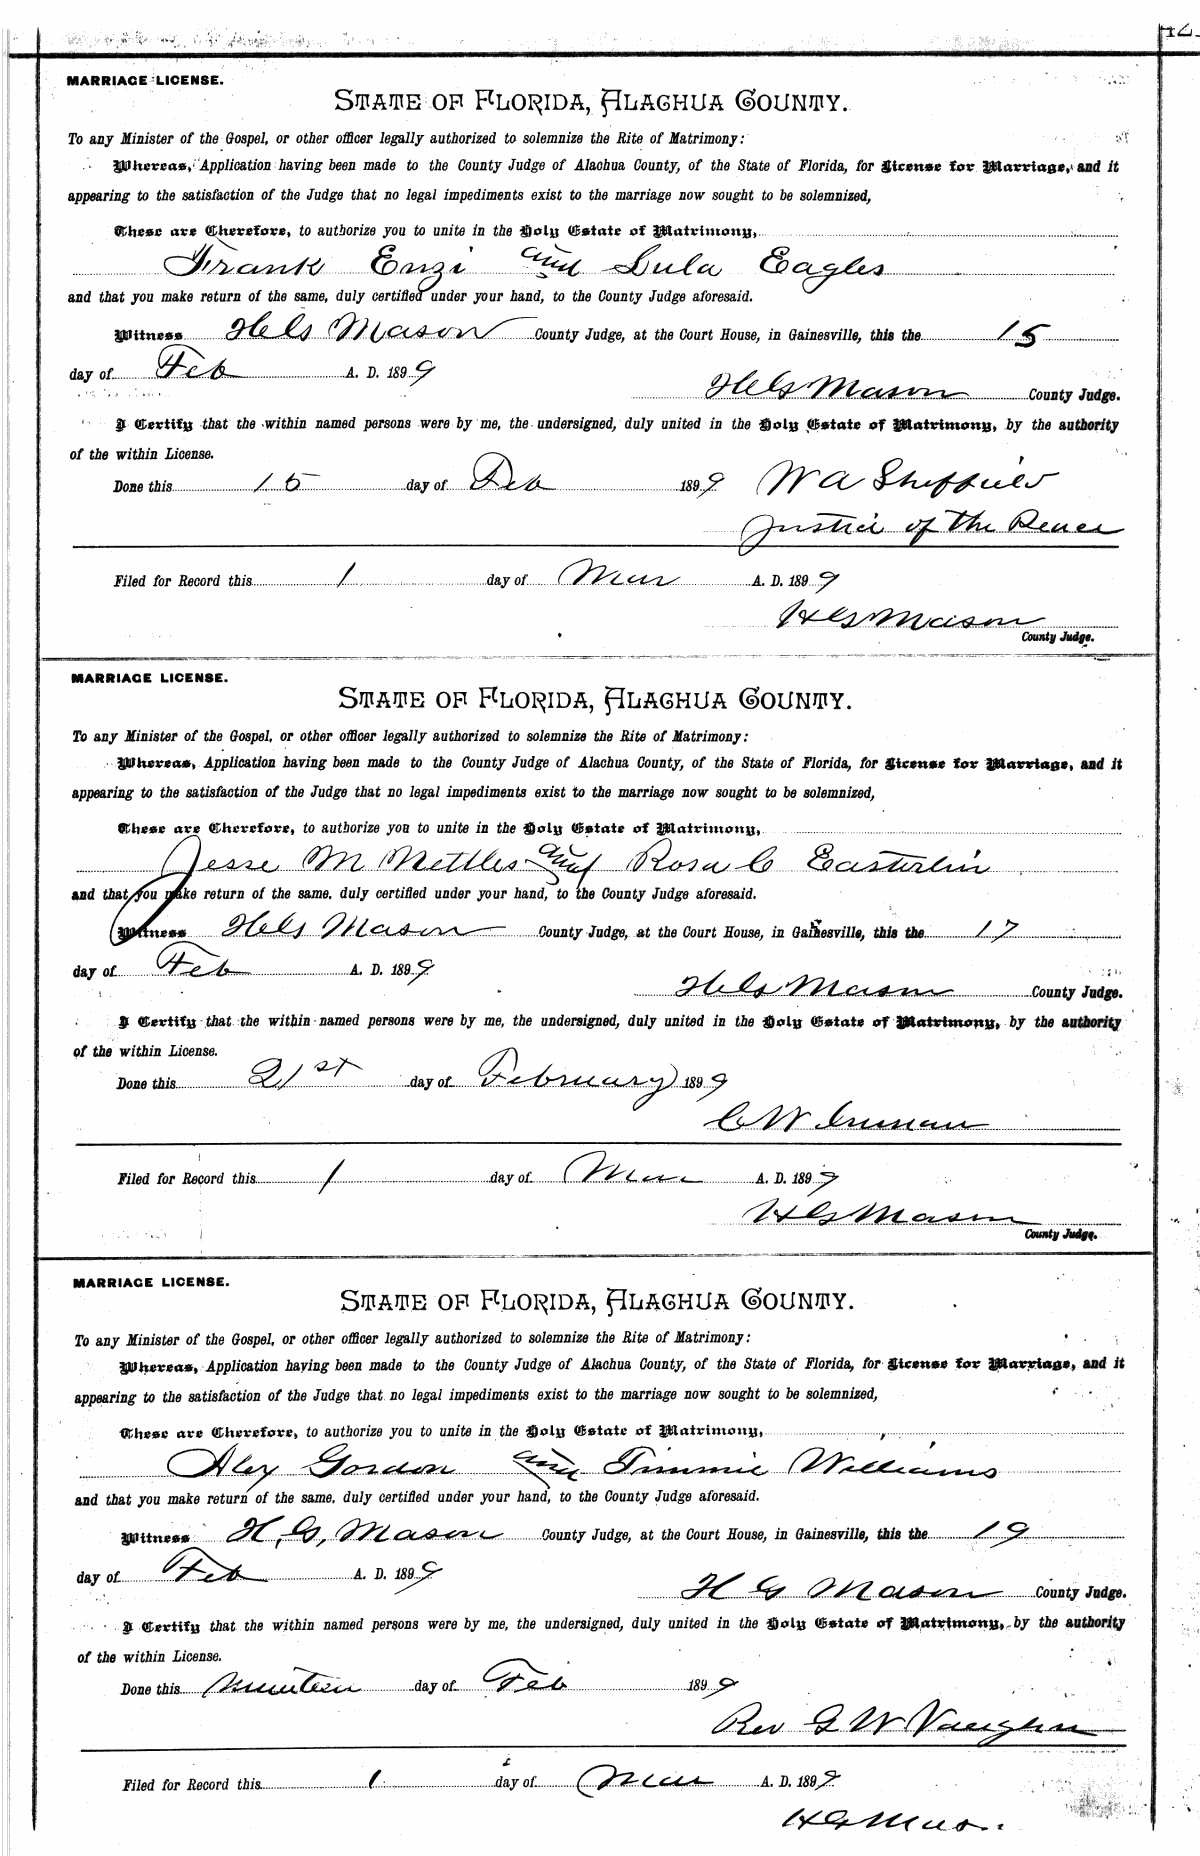 MARRIAGE LICENSE.
STATE OF FLORIDA, ALACHUA COUNTY.
To any Minister of the Gospel, or other officer legally authorized to solemnize the Rite of Matrimony:
Whereas, Application having been made to the County Judge of Alachua County, of the State of Florida, for License for Marriage, and it
appearing to the satisfaction of the Judge that no legal impediments exist to the marriage now sought to be solemnized,
These are Therefore, to authorize you to unite in the Holy Estate of Matrimony,
Frank Enzi and Lula Eagles
and that you make return of the same, duly certified under your hand, to the County Judge aforesaid.
Witness H G Mason County Judge, at the Court House, in Gainesville, this the 15
day of Feb A. D. 1899
H G Mason County Judge.
I Certify that the within named persons were by me, the undersigned, duly united in the Holy Estate of Matrimony, by the authority
of the within License.
Done this 15 day of Feb 1899 W A Sheffield
Justice of the Peace
Filed for Record this 1 day of Mar A. D. 1899
H G Mason
County Judge.
MARRIAGE LICENSE.
STATE OF FLORIDA, ALACHUA COUNTY.
To any Minister of the Gospel, or other officer legally authorized to solemnize the Rite of Matrimony:
Whereas, Application having been made to the County Judge of Alachua County, of the State of Florida, for License for Marriage, and it
appearing to the satisfaction of the Judge that no legal impediments exist to the marriage now sought to be solemnized,
These are Therefore, to authorize you to unite in the Holy Estate of Matrimony,
Jesse M Nettles and Rosa C Easterlin
and that you make return of the same, duly certified under your hand, to the County Judge aforesaid.
Witness H G Mason County Judge, at the Court House, in Gainesville, this the 17
day of Feb A. D. 1899
H G Mason County Judge.
I Certify that the within named persons were by me, the undersigned, duly united in the Holy Estate of Matrimony, by the authority
of the within License.
Done this 21st day of February 1899
C W Inman
Filed for Record this 1 day of Mar A. D. 1899
H G Mason
County Judge.
MARRIAGE LICENSE.
STATE OF FLORIDA, ALACHUA COUNTY.
To any Minister of the Gospel, or other officer legally authorized to solemnize the Rite of Matrimony:
Whereas, Application having been made to the County Judge of Alachua County, of the State of Florida, for License for Marriage, and it
appearing to the satisfaction of the Judge that no legal impediments exist to the marriage now sought to be solemnized,
These are Therefore, to authorize you to unite in the Holy Estate of Matrimony,
Alex Gordon and Timmie Williams
and that you make return of the same, duly certified under your hand, to the County Judge aforesaid.
Witness H. G. Mason County Judge, at the Court House, in Gainesville, this the 19
day of Feb A. D. 1899
H G Mason County Judge.
I Certify that the within named persons were by me, the undersigned, duly united in the Holy Estate of Matrimony, by the authority
of the within License.
Done this day of Feb 1899
Rev G W Vaughn
Filed for Record this 1 day of Mar A. D. 1899
H G Mason